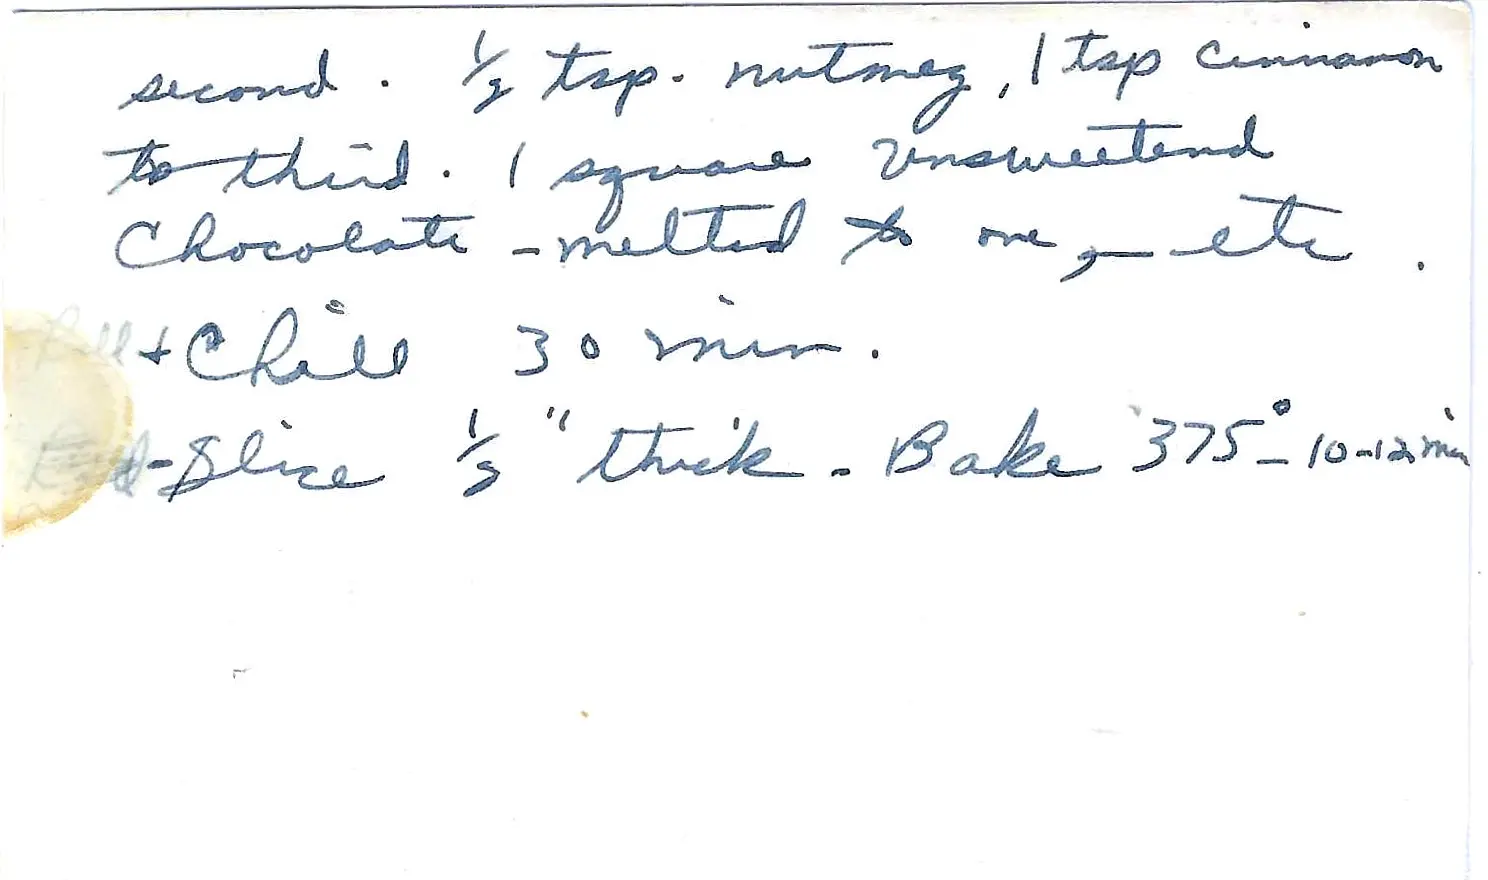 second. 1/2 tsp. nutmeg, 1 tsp cinnamon
to third. 1 square unsweetend
Chocolate - melted to one, - etc.
Roll + Chill 30 min.
- Slice 1/2" thick - Bake 375° - 10-12 min